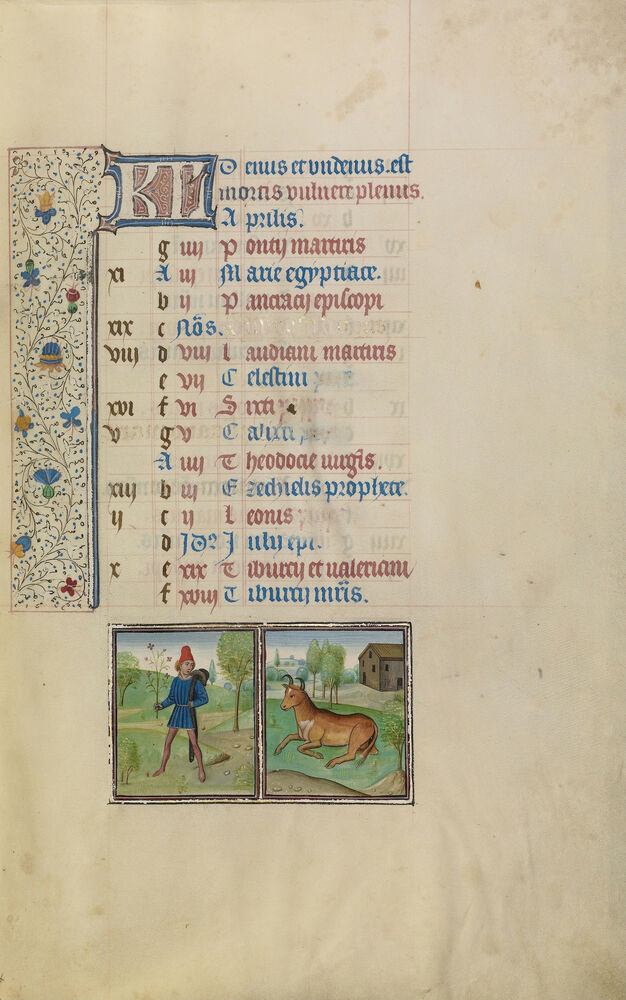 KL Denus et vndenus. est
mortis vulnere plenus.
Aprilis.
g iiij Pontij martiris
xi A iij Marie egyptiace.
b ij Pancracij episcopi
xix c Nõs.
viij d viij Laudiani martiris
e vij Celestini
xvi f vi Sixti
v g v Calixti
A iiij Theodocie uirgis.
xiij b iij Ezechielis prophete.
ij c ij Leonis
d Id9 Iulij epi.
x e xix Tiburcij et ualeriani
f xviij Tiburcij mris.